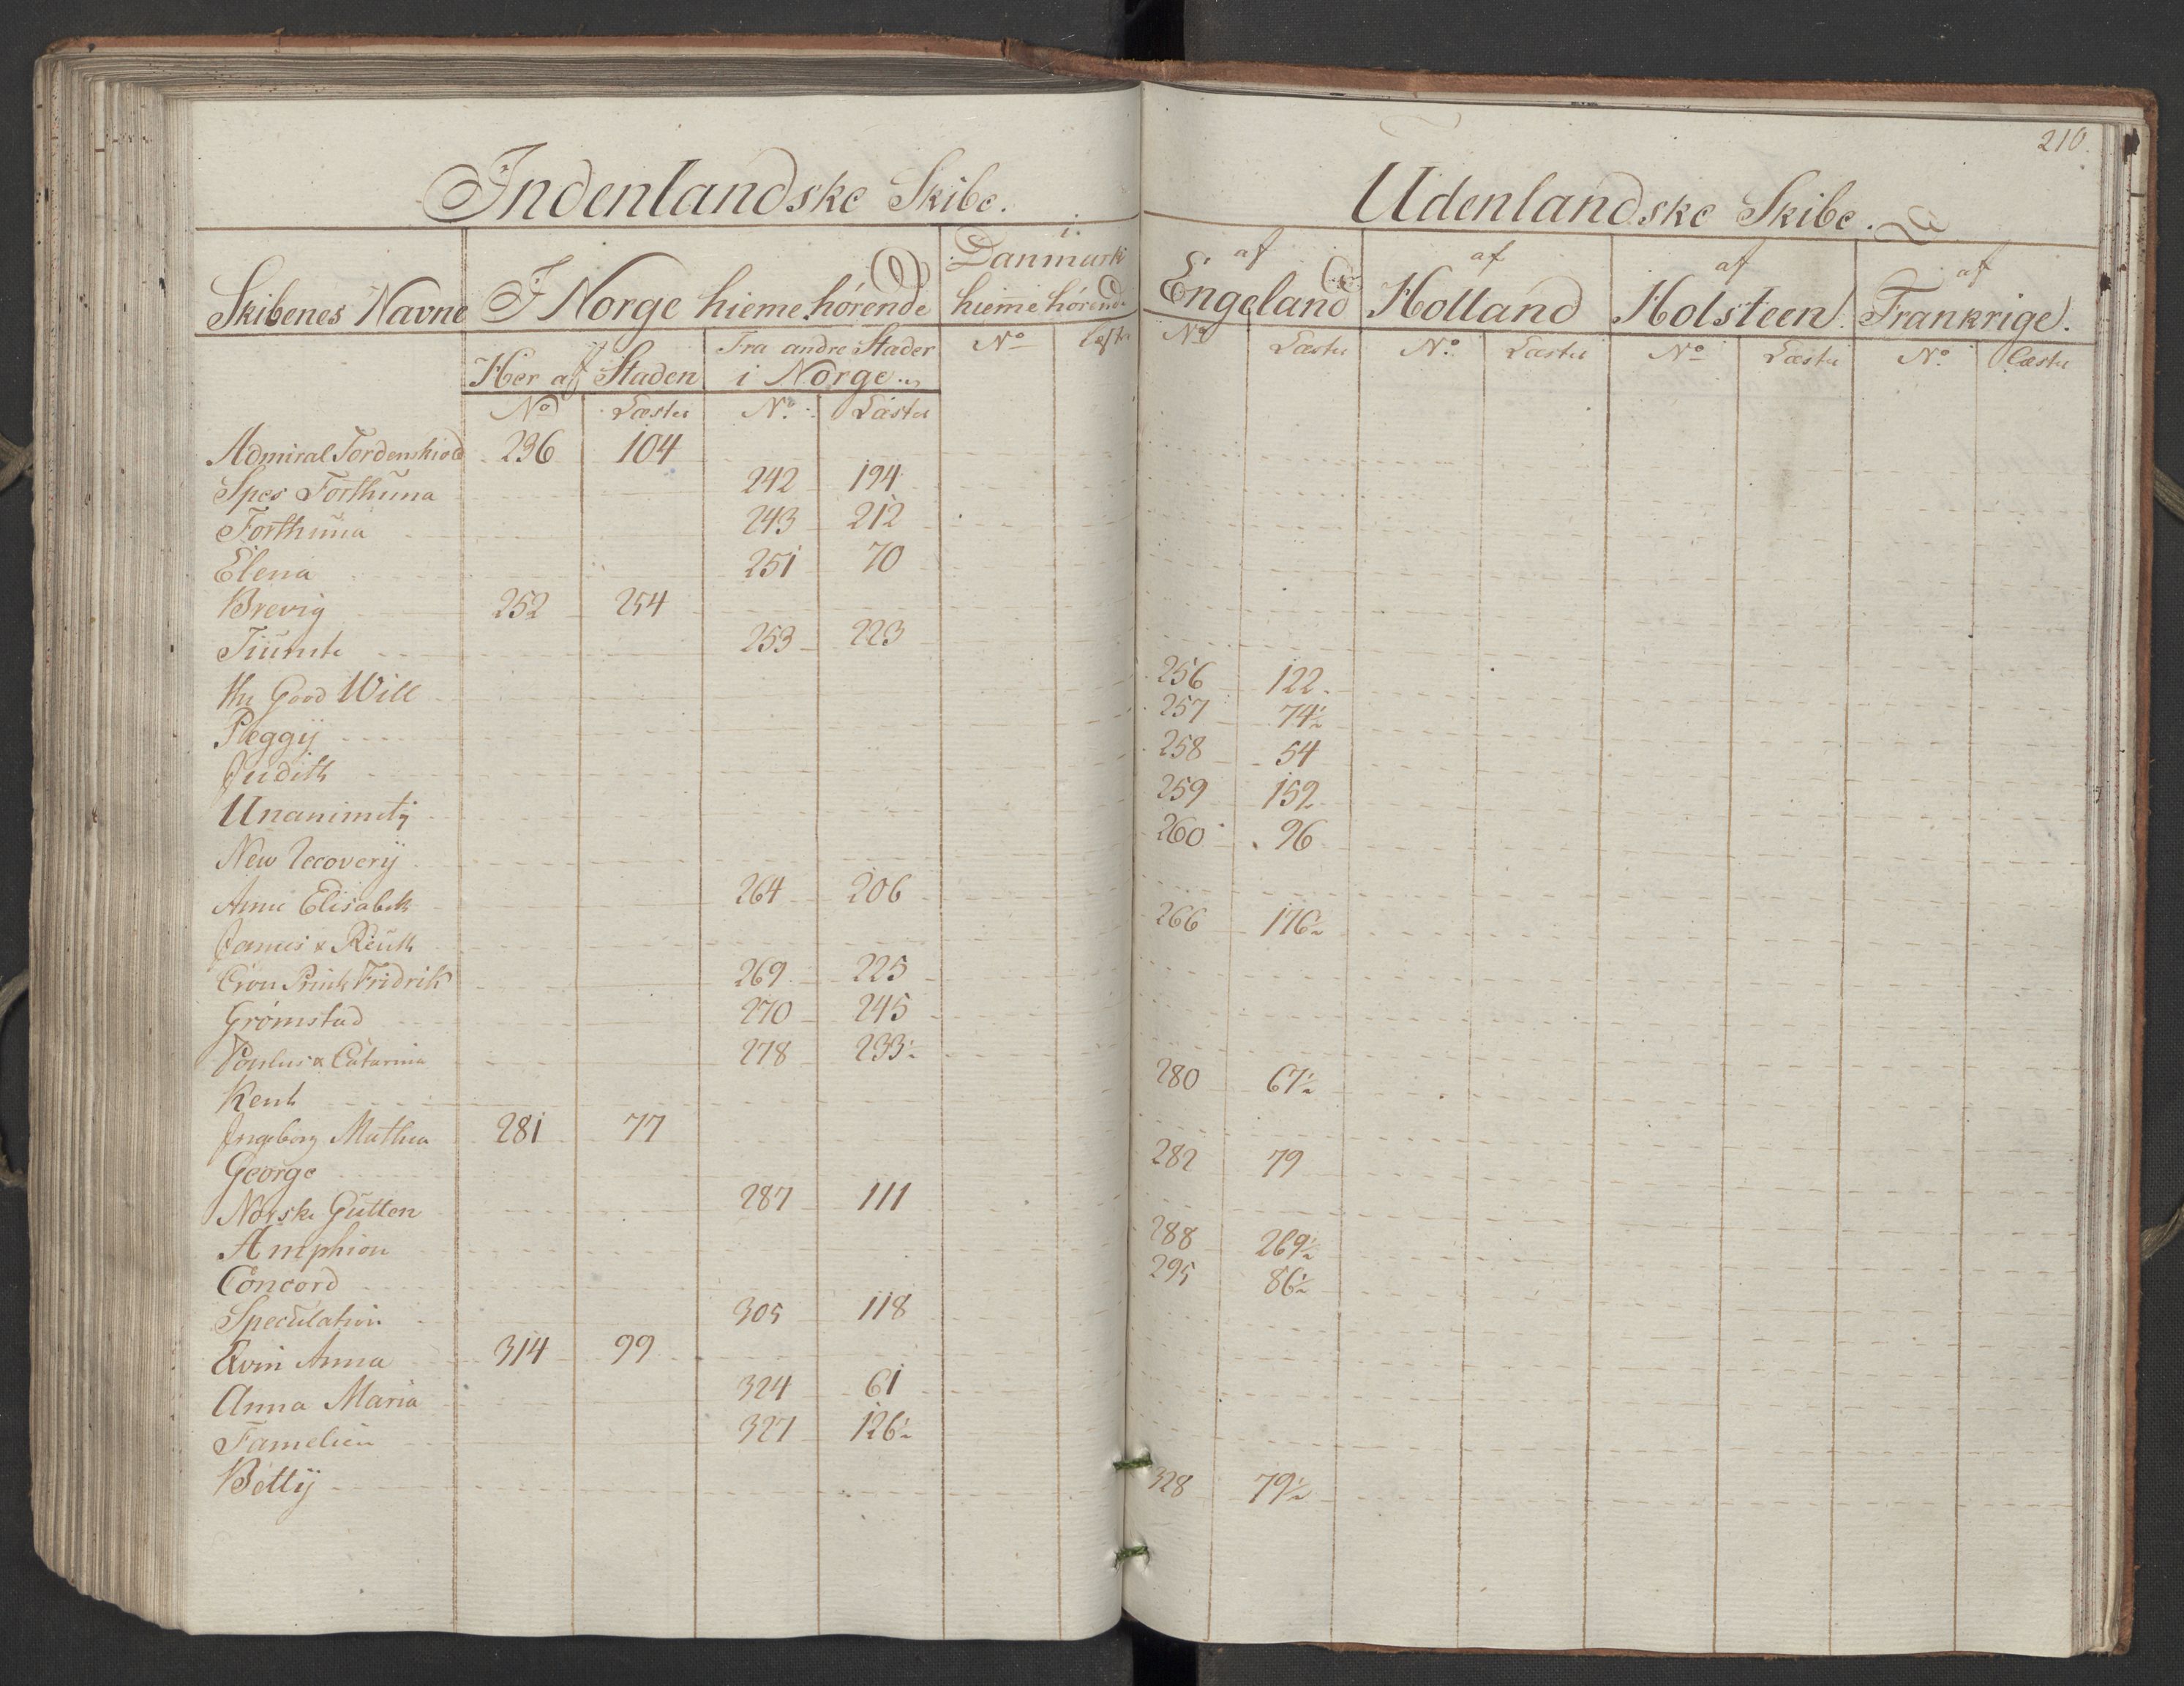 210.
Indenlandske Skibe. Udenlandske Skibe.
Skibenes Navne I Norge hieme hørende i Danmark hieme hørende af Engeland af Holland af Holsteen af Frankrige.
Her af Staden Fra andre Stader i Norge
No Læster No Læster No Læst No Læster No Læster No Læster No Læster
Admiral Tordenskiold 236 104
Spes Forthuna 242 194
Forthuna 243 212
Elena 251 70
Brevig 252 254
253 223
the Good Will 256 122
Pleggÿ 257 74½
Judith 258 54
Unanimitÿ 259 152
New Recoverÿ 260 96
Anne Elisabeth 264 206
James & Reuth 266 176½
Cron Prints Fridrik 269 225
Grømstad 270 245
Poulus & Catarina 278 233½
Kent 280 67½
Ingeborg Mathea 281 77
George 282 79
Norske Gutten 287 111
Amphion 288 269½
Concord 295 86½
Speculation 305 118
Anna 314 99
Anna Maria 324 61
Familien 327 126½
Bettÿ 328 79½